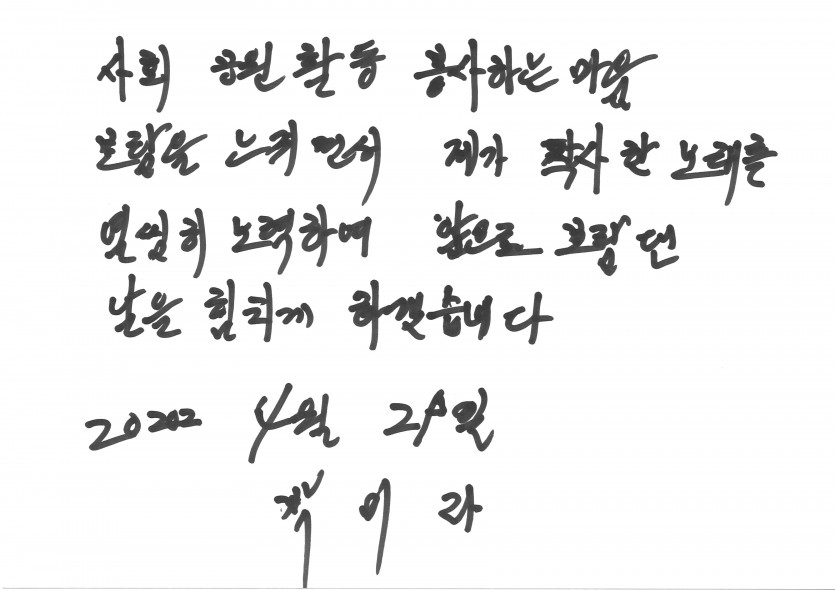 사회 공원 활동 봉사하는 마음
보람을 느끼면서 제가 작사한 노래를
열심히 노력하여 앞으로 보람댄
날을 힘차게 하겠습니다
20202 4월 29일
이라